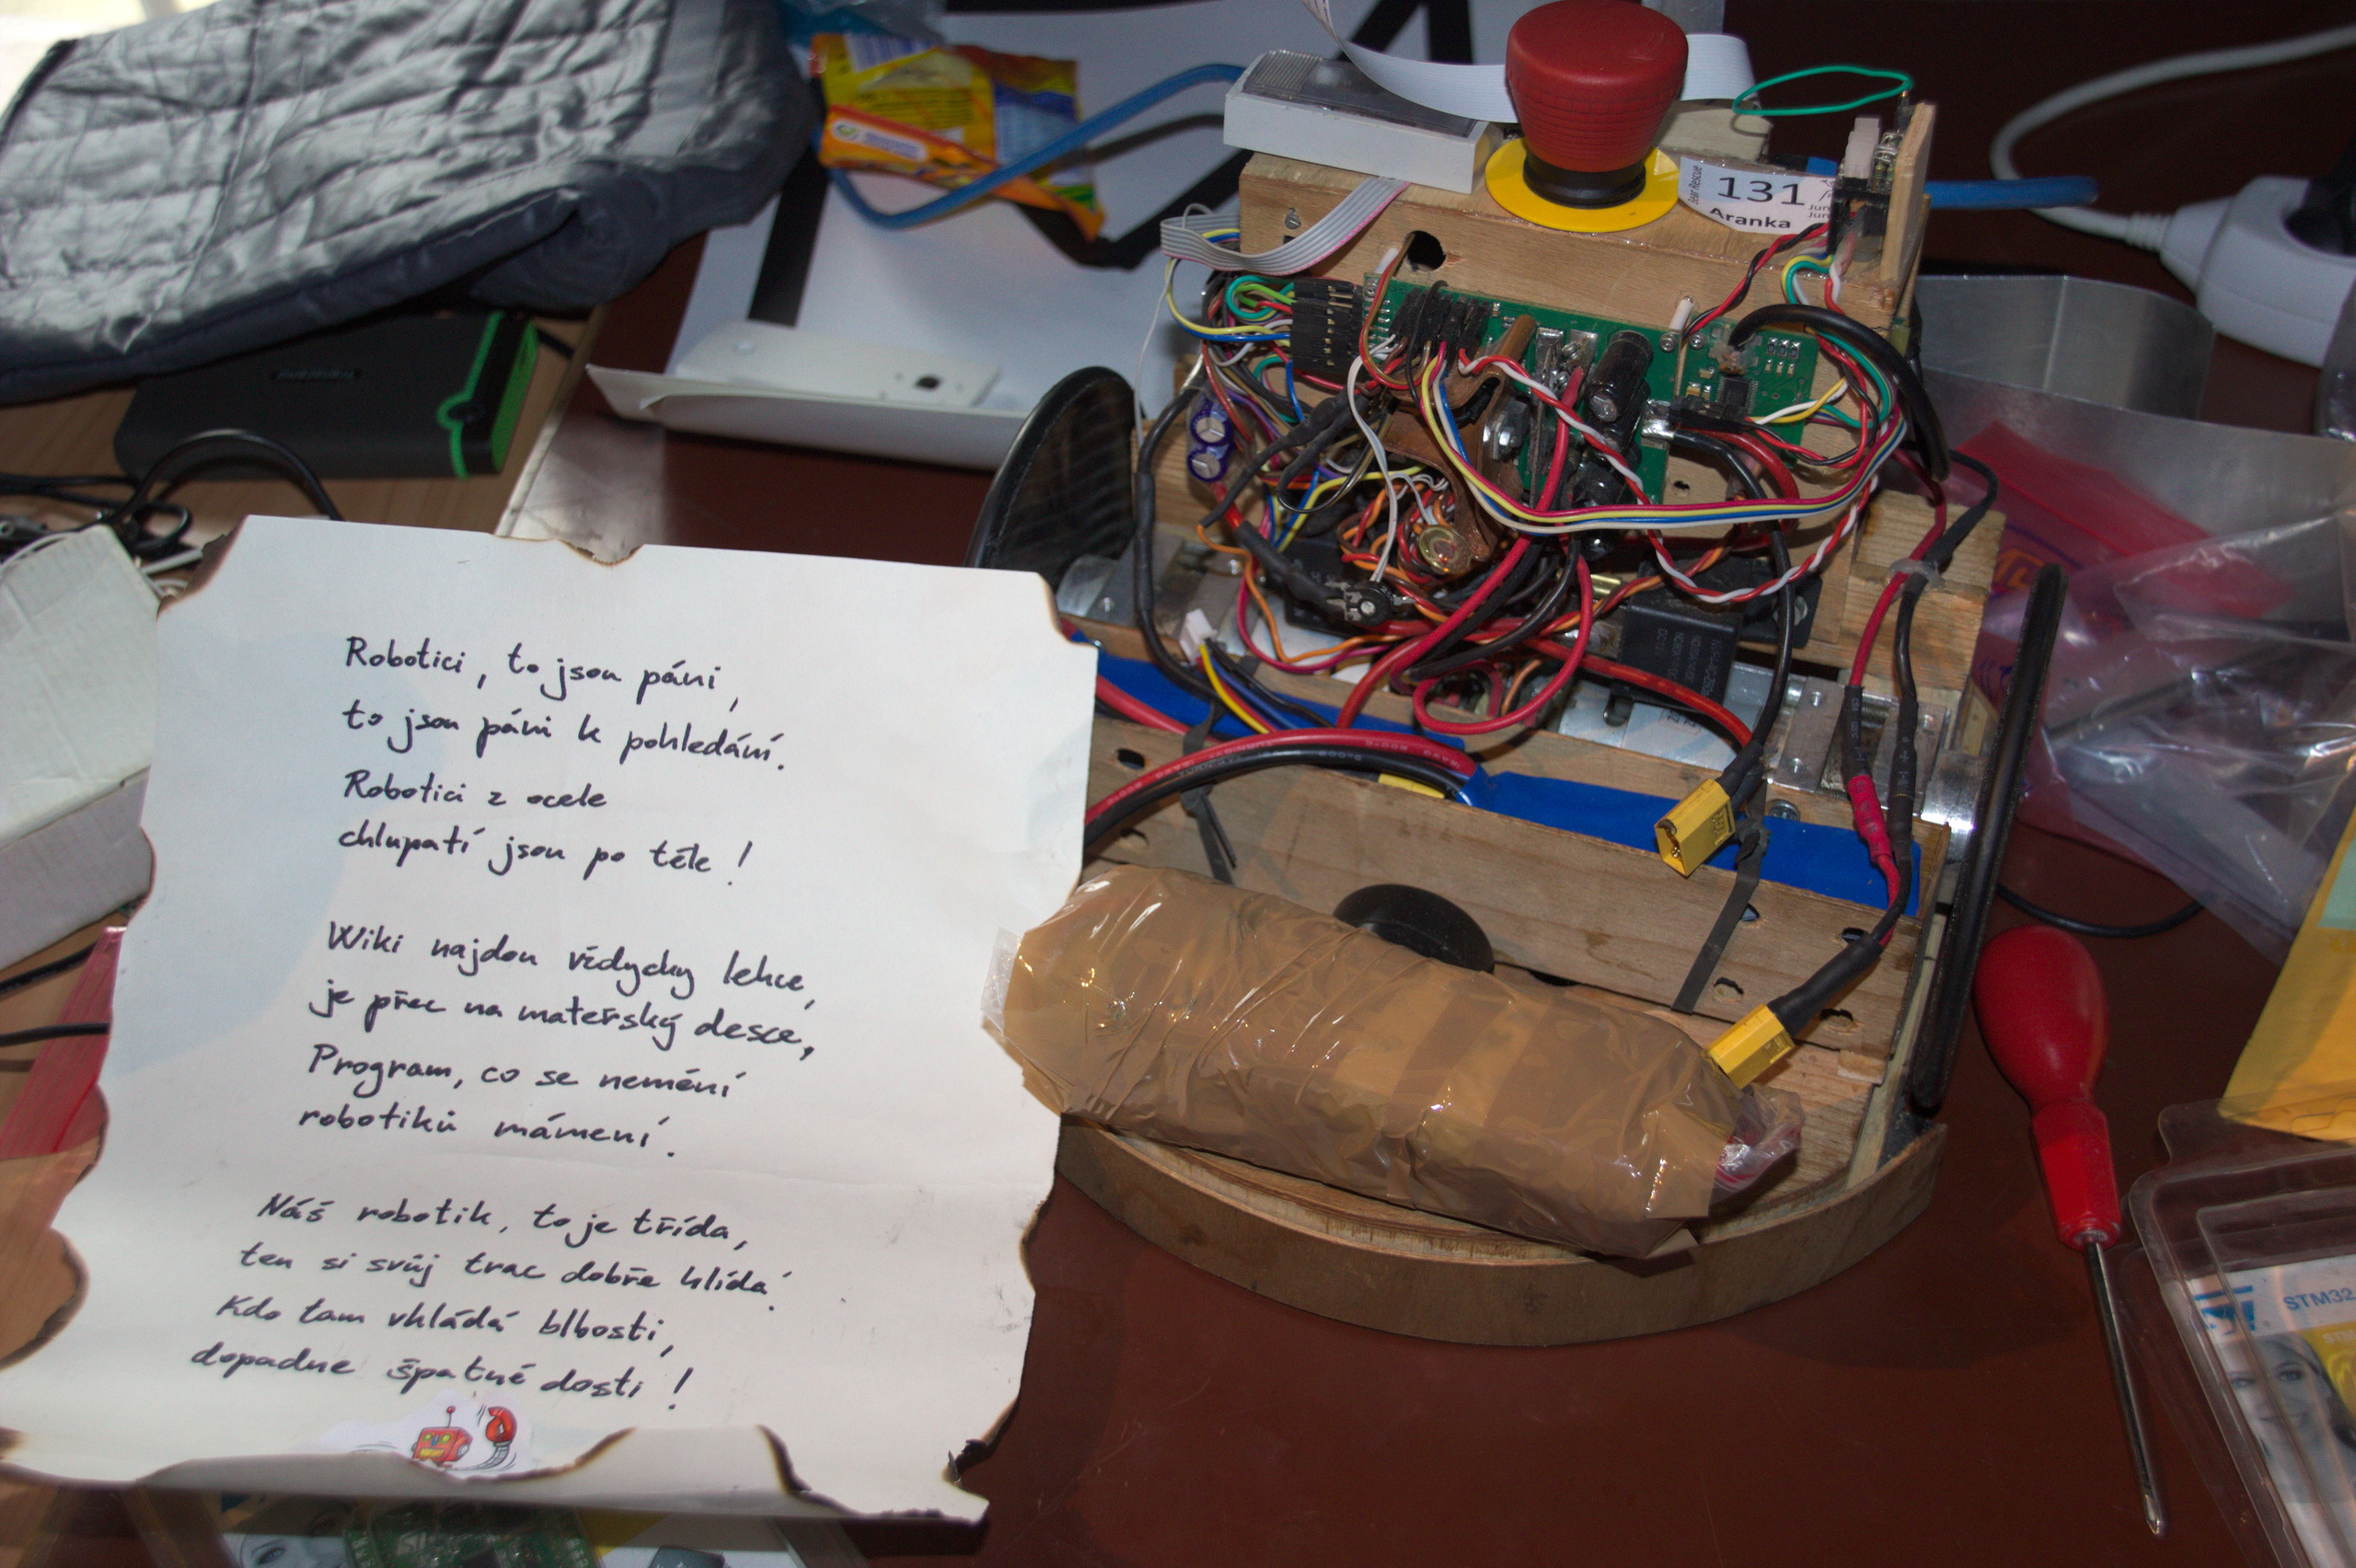 Robotici, to jsou páni,
to jsou páni k pohledání.
Robotici z ocele
chlupatí jsou po těle!
Wiki najdou vždycky lehce,
je přec na mateřský desce,
Program, co se nemění
robotiků mámení.
Náš robotik, to je třída,
ten si svůj trac dobře hlídá!
Kdo tam vkládá blbosti,
dopadne špatně dosti!
Bear Rescue
131
Aranka
STM32